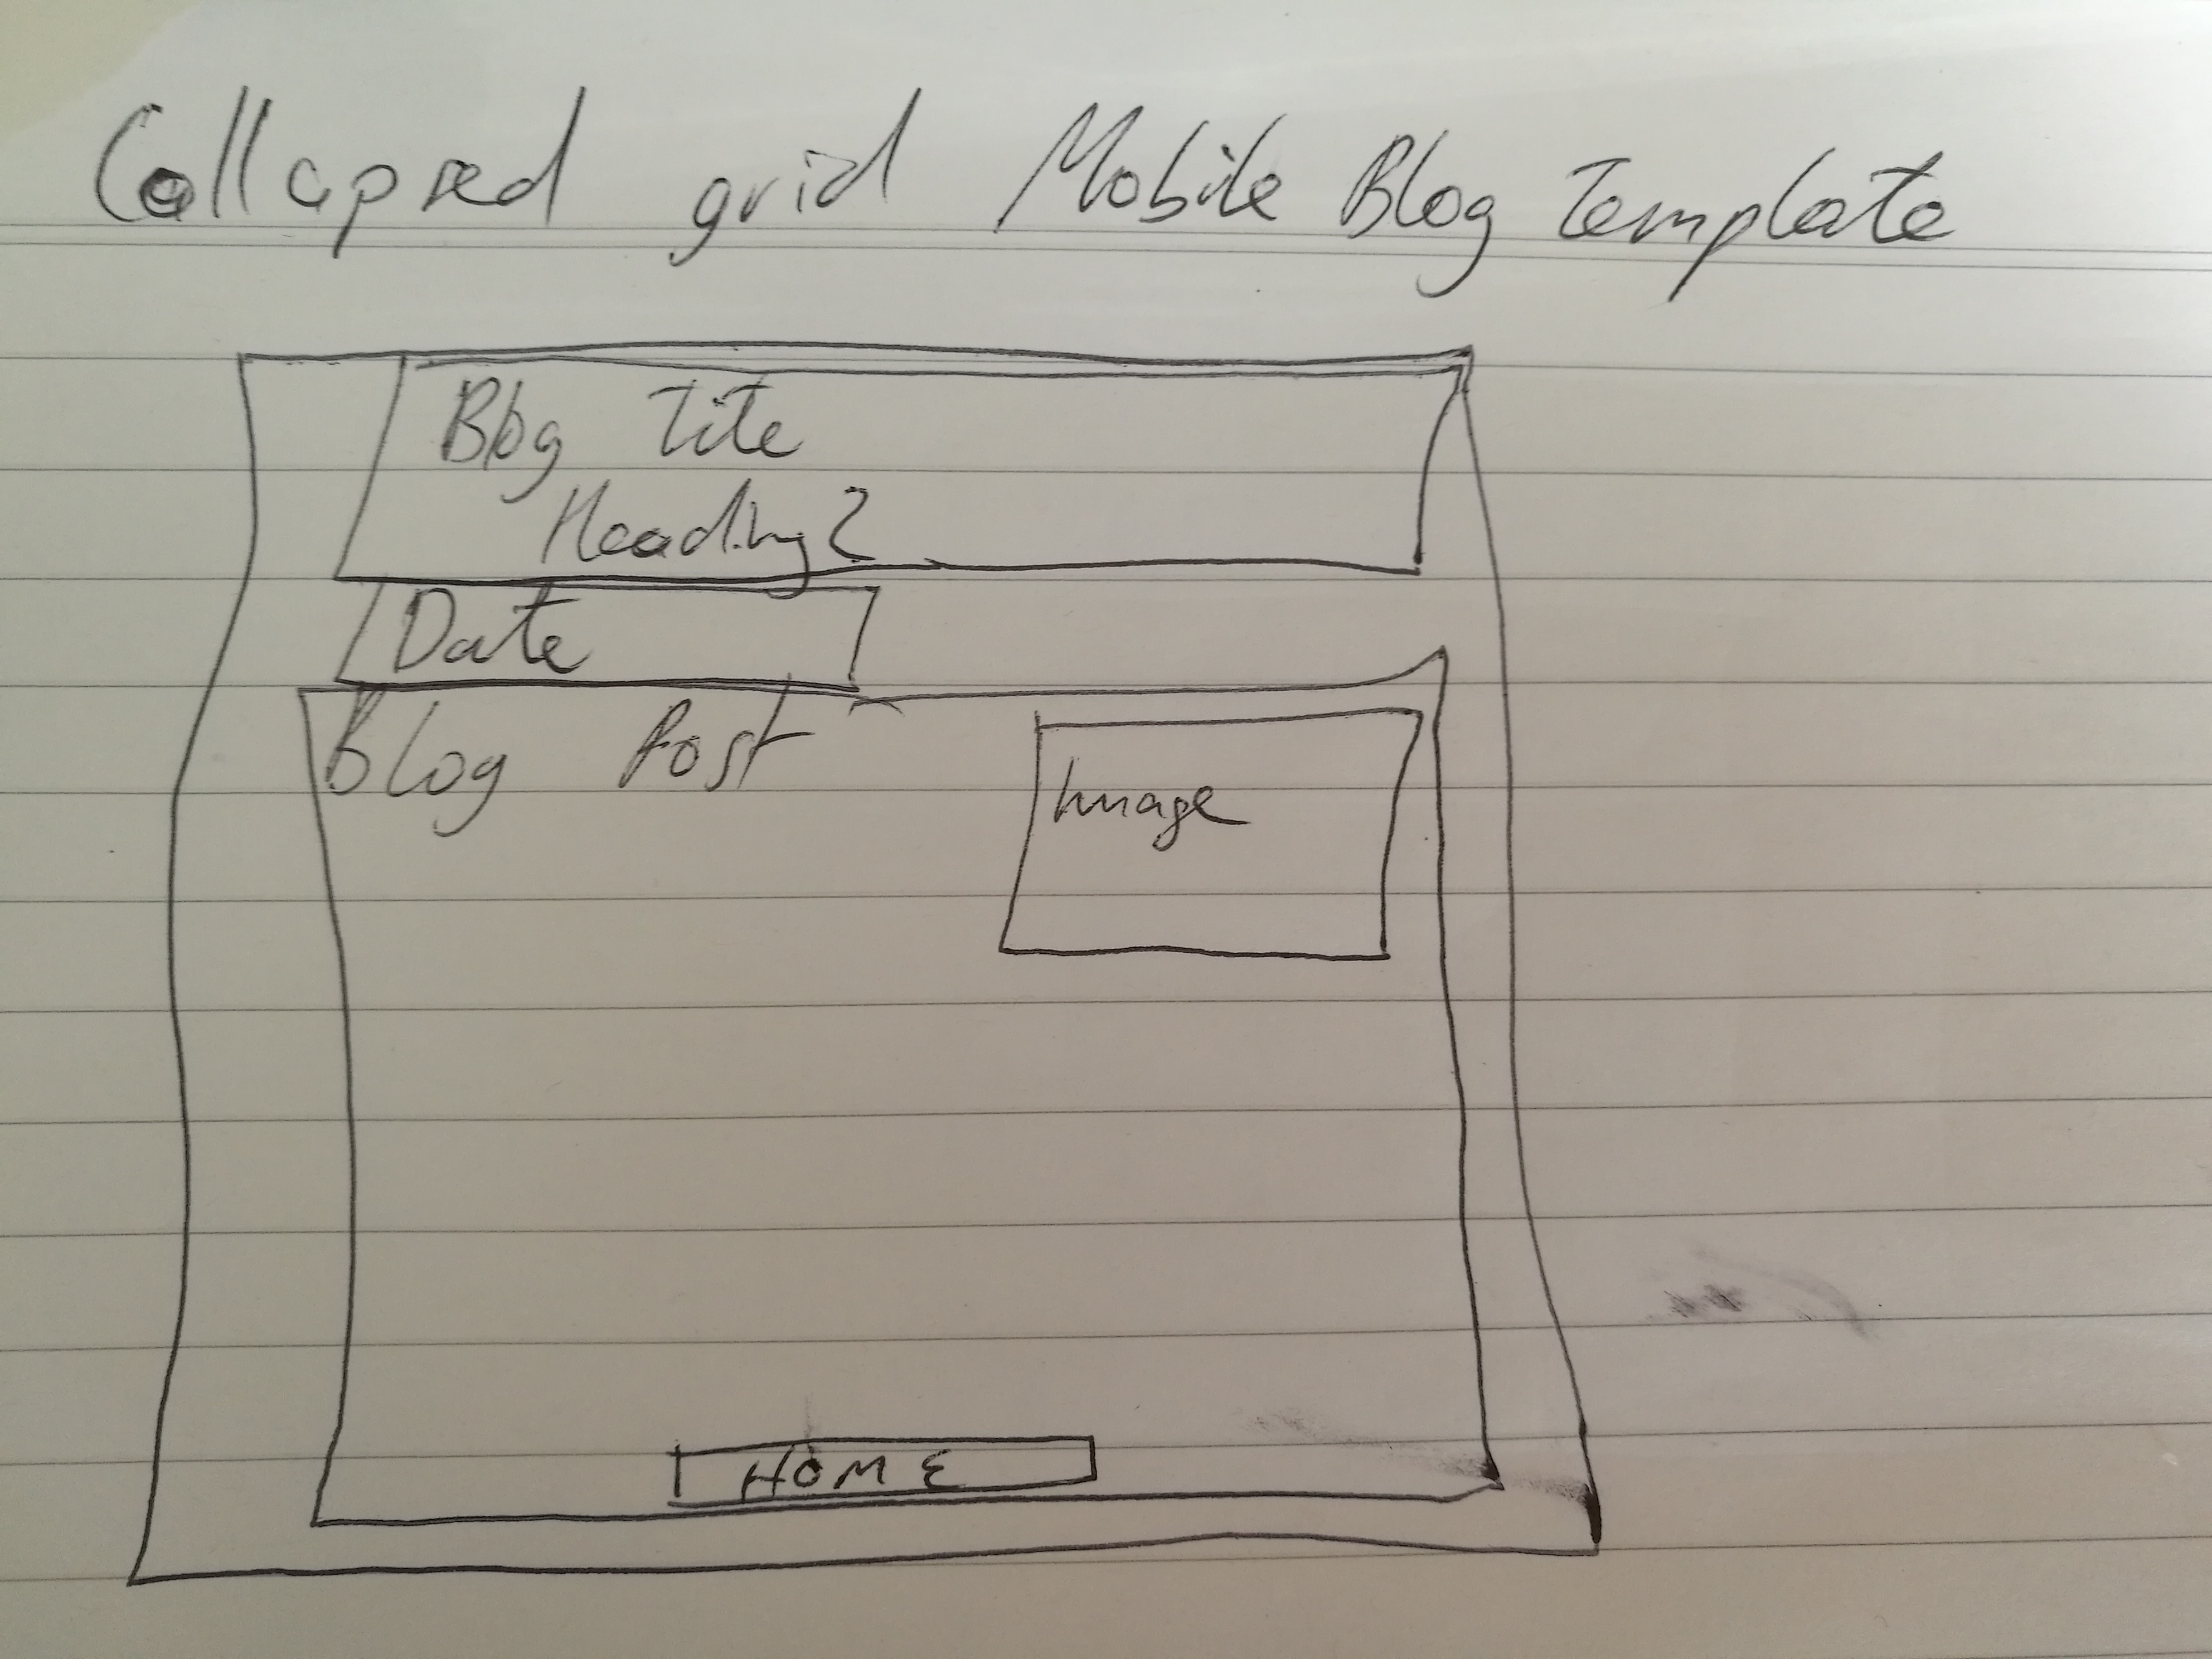 Collapsed grid Mobile Blog Template
Blog Title
Heading 2
Date
Blog Post
Image
HOME